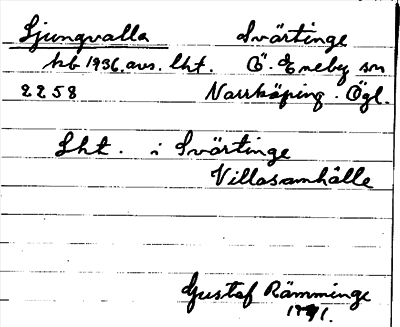 Ljungvalla Svärtinge
hb 1936. avs. lht. Ö. Eneby sn
2258 Norrköping. Ögl.
Lht. i Svärtinge
Villasamhälle
Gustaf Rämminge
1991.